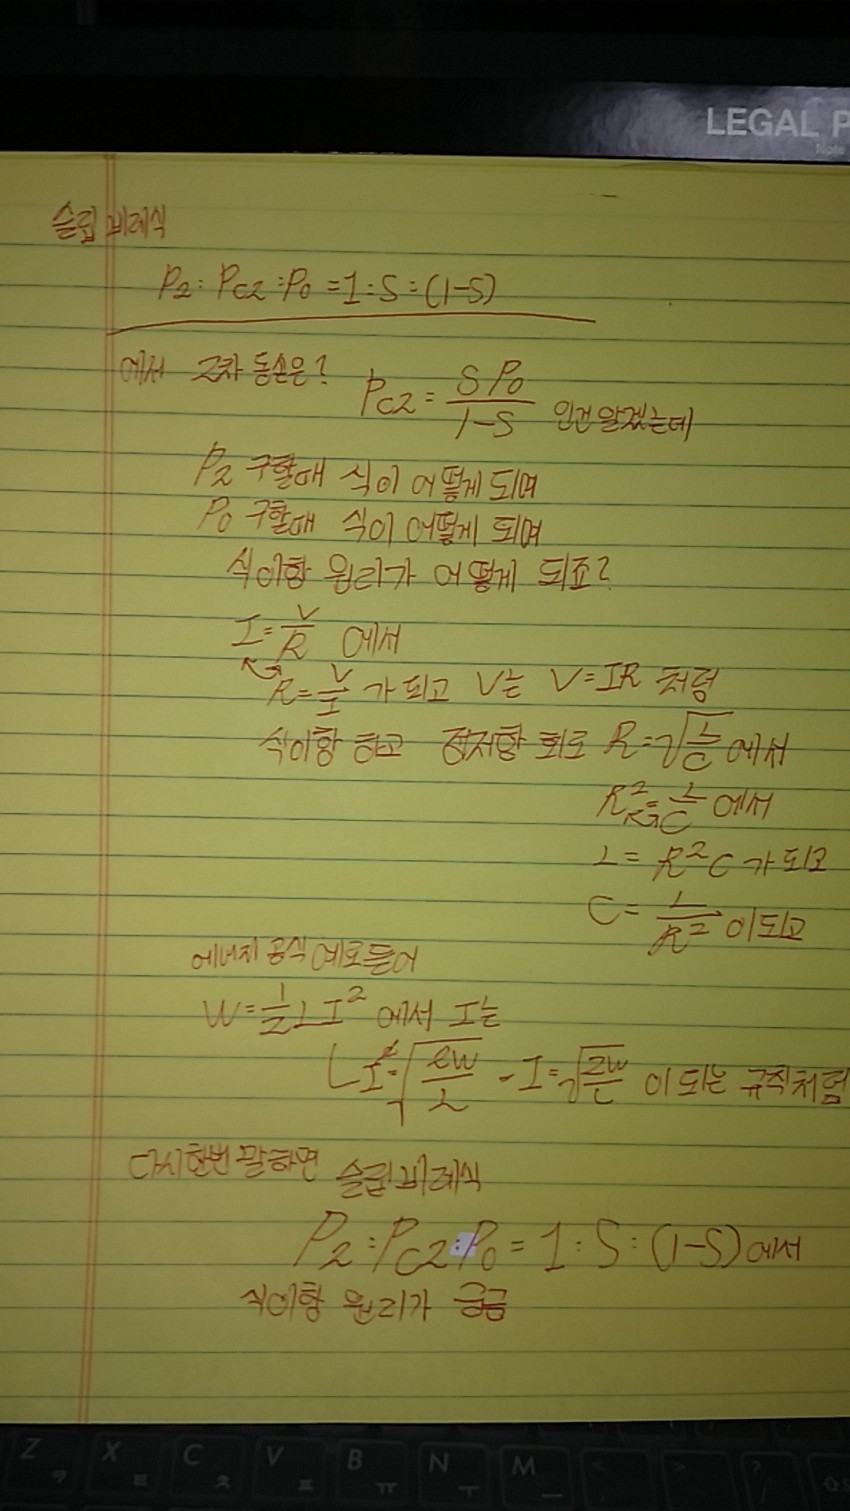 LEGAL P
Note
슬립 비례식
P₂ : P_C2 : P₀ = 1 : S : (1-S)
에서 2차 동손은? P_C2 = S P₀ / 1-S 인건 알겠는데
P₂ 구할때 식이 어떻게 되며
P₀ 구할때 식이 어떻게 되며
식이항 원리가 어떻게 되죠?
I = V/R 에서
R = V/I 가 되고 V는 V=IR 처럼
식이항 하고 정저항 회로 R = √(L/C) 에서
R² = L/C 에서
L = R²C 가 되고
C = L/R² 이 되고
에너지 공식 예로들어
W = 1/2 L I² 에서 I는
I = √(2W/L) - I = √(2W/L) 이 되는 규칙처럼
다시한번 말하면 슬립비례식
P₂ : P_C2 : P₀ = 1 : S : (1-S) 에서
식이항 원리가 궁금
Z X C V B N M < > ?
ㅋ ㅌ ㅊ ㅍ ㅠ ㅜ ㅡ